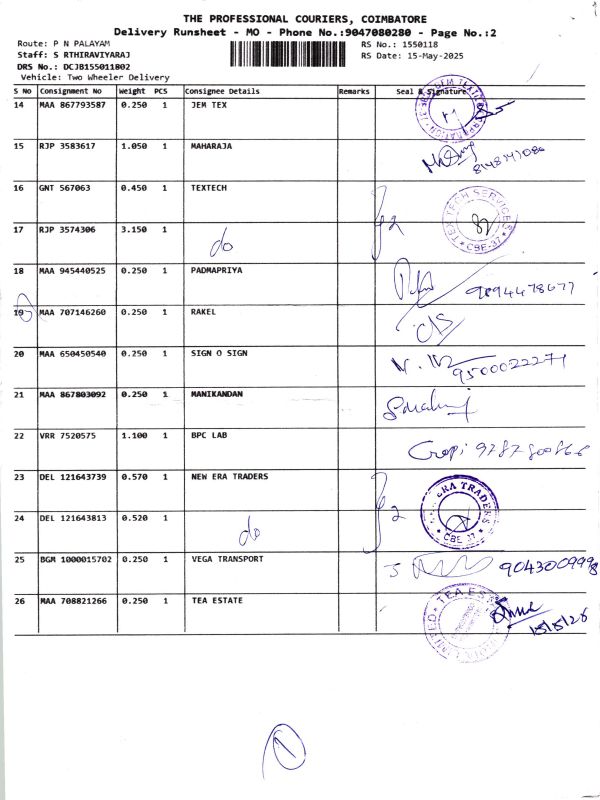 THE PROFESSIONAL COURIERS, COIMBATORE
Delivery Runsheet - MO - Phone No.:9047080280 - Page No.:2
Route: P N PALAYAM
Staff: S RTHIRAVIYARAJ
DRS No.: DCJB155011802
Vehicle: Two Wheeler Delivery
RS No.: 1550118
RS Date: 15-May-2025
S No Consignment No Weight PCS Consignee Details Remarks Seal & Signature
14 MAA 867793587 0.250 1 JEM TEX
15 RJP 3583617 1.050 1 MAHARAJA
16 GNT 567063 0.450 1 TEXTECH 2 TEX TECH SERVICES CBE-37
17 RJP 3574306 3.150 1 do
18 MAA 945440525 0.250 1 PADMAPRIYA 9894478677
19 MAA 707146260 0.250 1 RAKEL
20 MAA 650450540 0.250 1 SIGN O SIGN 9500022271
21 MAA 867803092 0.250 1 MANIKANDAN
22 VRR 7520575 1.100 1 BPC LAB Gopi 9787800866
23 DEL 121643739 0.570 1 NEW ERA TRADERS 2 ERA TRADERS CBE 37
24 DEL 121643813 0.520 1 do
25 BGM 1000015702 0.250 1 VEGA TRANSPORT 9043009998
26 MAA 708821266 0.250 1 TEA ESTATE TEA EST LIMITED
15/5/25
1